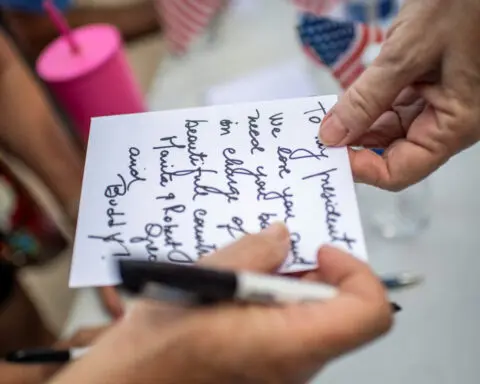 To my president
We love you and
need you b
in charge of
beautiful count
Maila & Robert
and
Buddy